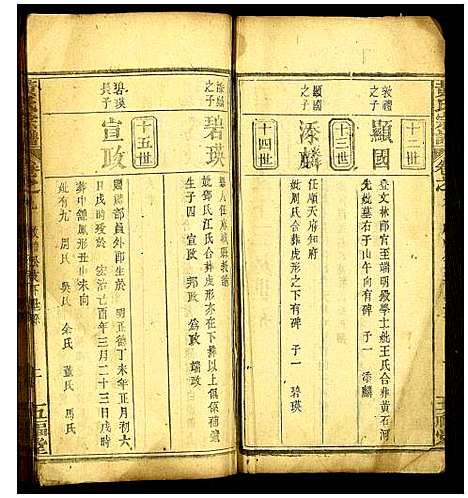 黄氏宗譜
卷之九
十二世
敦禮之子
顯國
登文林郎官至端明殿學士妣王氏合葬黃石河
先妣墓右子山午向有碑 子一 添麟
十三世
顯國之子
添麟
任順天府知府
妣周氏合葬虎形亦下有碑 子一 碧瑛
十四世
添麟之子
碧瑛
妣鄧氏江氏合葬虎形亦在大上俱保補壙
生子四 宣政 邦政 為政 端政
十五世
碧瑛長子
宣政
賜禮部員外郎生於 明正德丁未年正月初六
日戌時愛於 宏治己酉年三月二十三日戌時
葬中鍾鳳形丑山未向
妣有九 周氏 吳氏 余氏 董氏 馬氏
黄氏宗譜
卷之九
五福堂